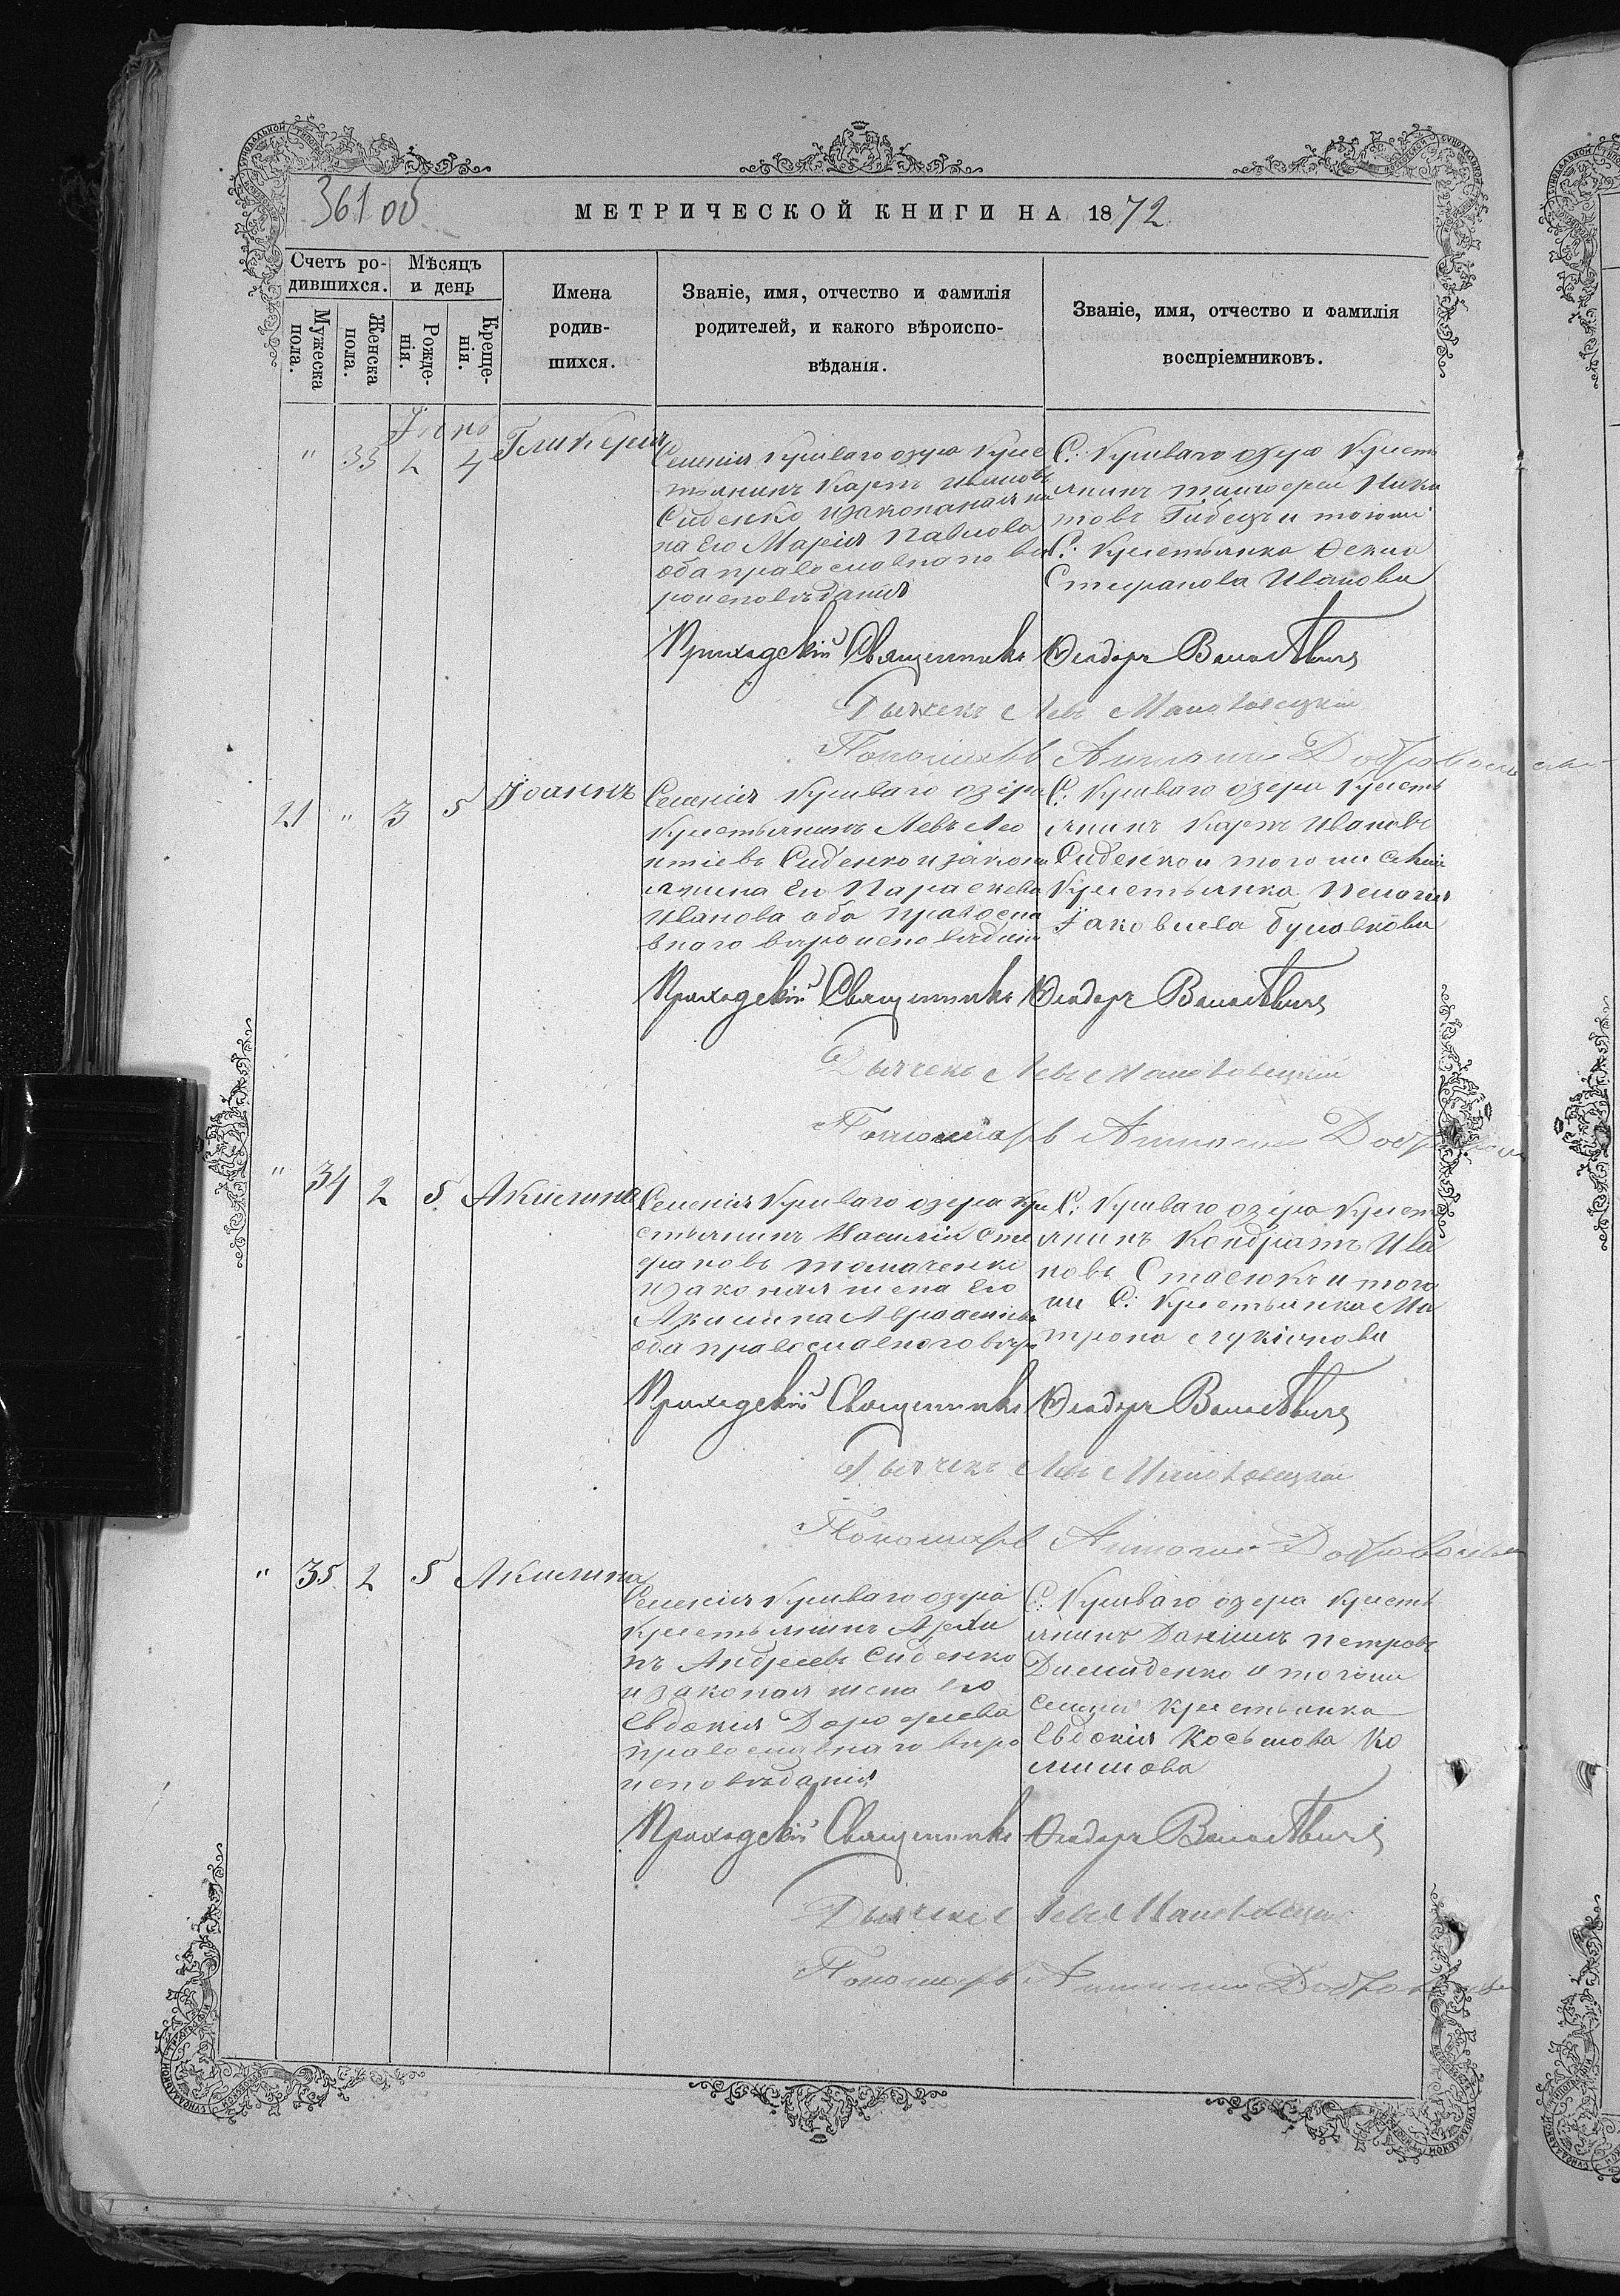 361 об
МЕТРИЧЕСКОЙ КНИГИ НА 1872
Счетъ ро-
дившихся.
Мужеска
пола.
Женска
пола.
Мѣсяцъ
и день
Рожде-
нія.
Креще-
нія.
Имена
родив-
шихся.
Званіе, имя, отчество и фамилія
родителей, и какого вѣроиспо-
вѣданія.
Званіе, имя, отчество и фамилія
воспріемниковъ.
" 33 2 4 Гликерія
Селенія Криваго озера Крес
тьянинъ Карпъ Ивановъ
Сиденко и законая же
на Его Марія Павлова
оба православного вѣ
роисповѣданія
С. Криваго озера Кресть
янинъ Тимофей Ники
товъ Гибецъ и тогоже
С. Крестьянка Фекла
Стефанова Иванова
Приходскій Священникъ Ѳеодоръ
Дьячекъ Левъ Маньковецкій
Пономарь Антоній
21 " 3 5 Іоаннъ
Селенія Криваго озера
Крестьянинъ Левъ Лео
нтіевъ Сиденко и законая
жена Его Параскева
Иванова оба правосла
вного вѣроисповѣданія
С. Криваго озера Кресть
янинъ Карпъ Ивановъ
Сиденко и того же селенія
Крестьянка Пелагія
Іаковлева
Приходскій Священникъ Ѳеодоръ
Дьячекъ Левъ Маньковецкій
Пономарь Антоній
" 34 2 5 Акилина
Селенія Криваго озера Кре
стьянинъ Василій Сте
фановъ Томаченко
и законая жена Его
Акилина
оба православного вѣр
С. Криваго озера Крест
янинъ Кондратъ Ива
новъ Стасюкъ и того
же С. Крестьянка Ма
трона Лукіанова
Приходскій Священникъ Ѳеодоръ
Дьячекъ Левъ Маньковецкій
Пономарь Антоній
" 35 2 5 Акилина
Селенія Криваго озера
Крестьянинъ Архи
пъ Андреевъ Сиденко
и законая жена его
Евдокія Дорофеева
православного вѣро
исповѣданія
С. Криваго озера Кресть
янинъ Даніилъ Петровъ
Димиденко и тогоже
селенія Крестьянка
Евдокія Косьмова Ко
Приходскій Священникъ Ѳеодоръ
Дьячекъ Левъ
Пономарь Антоній